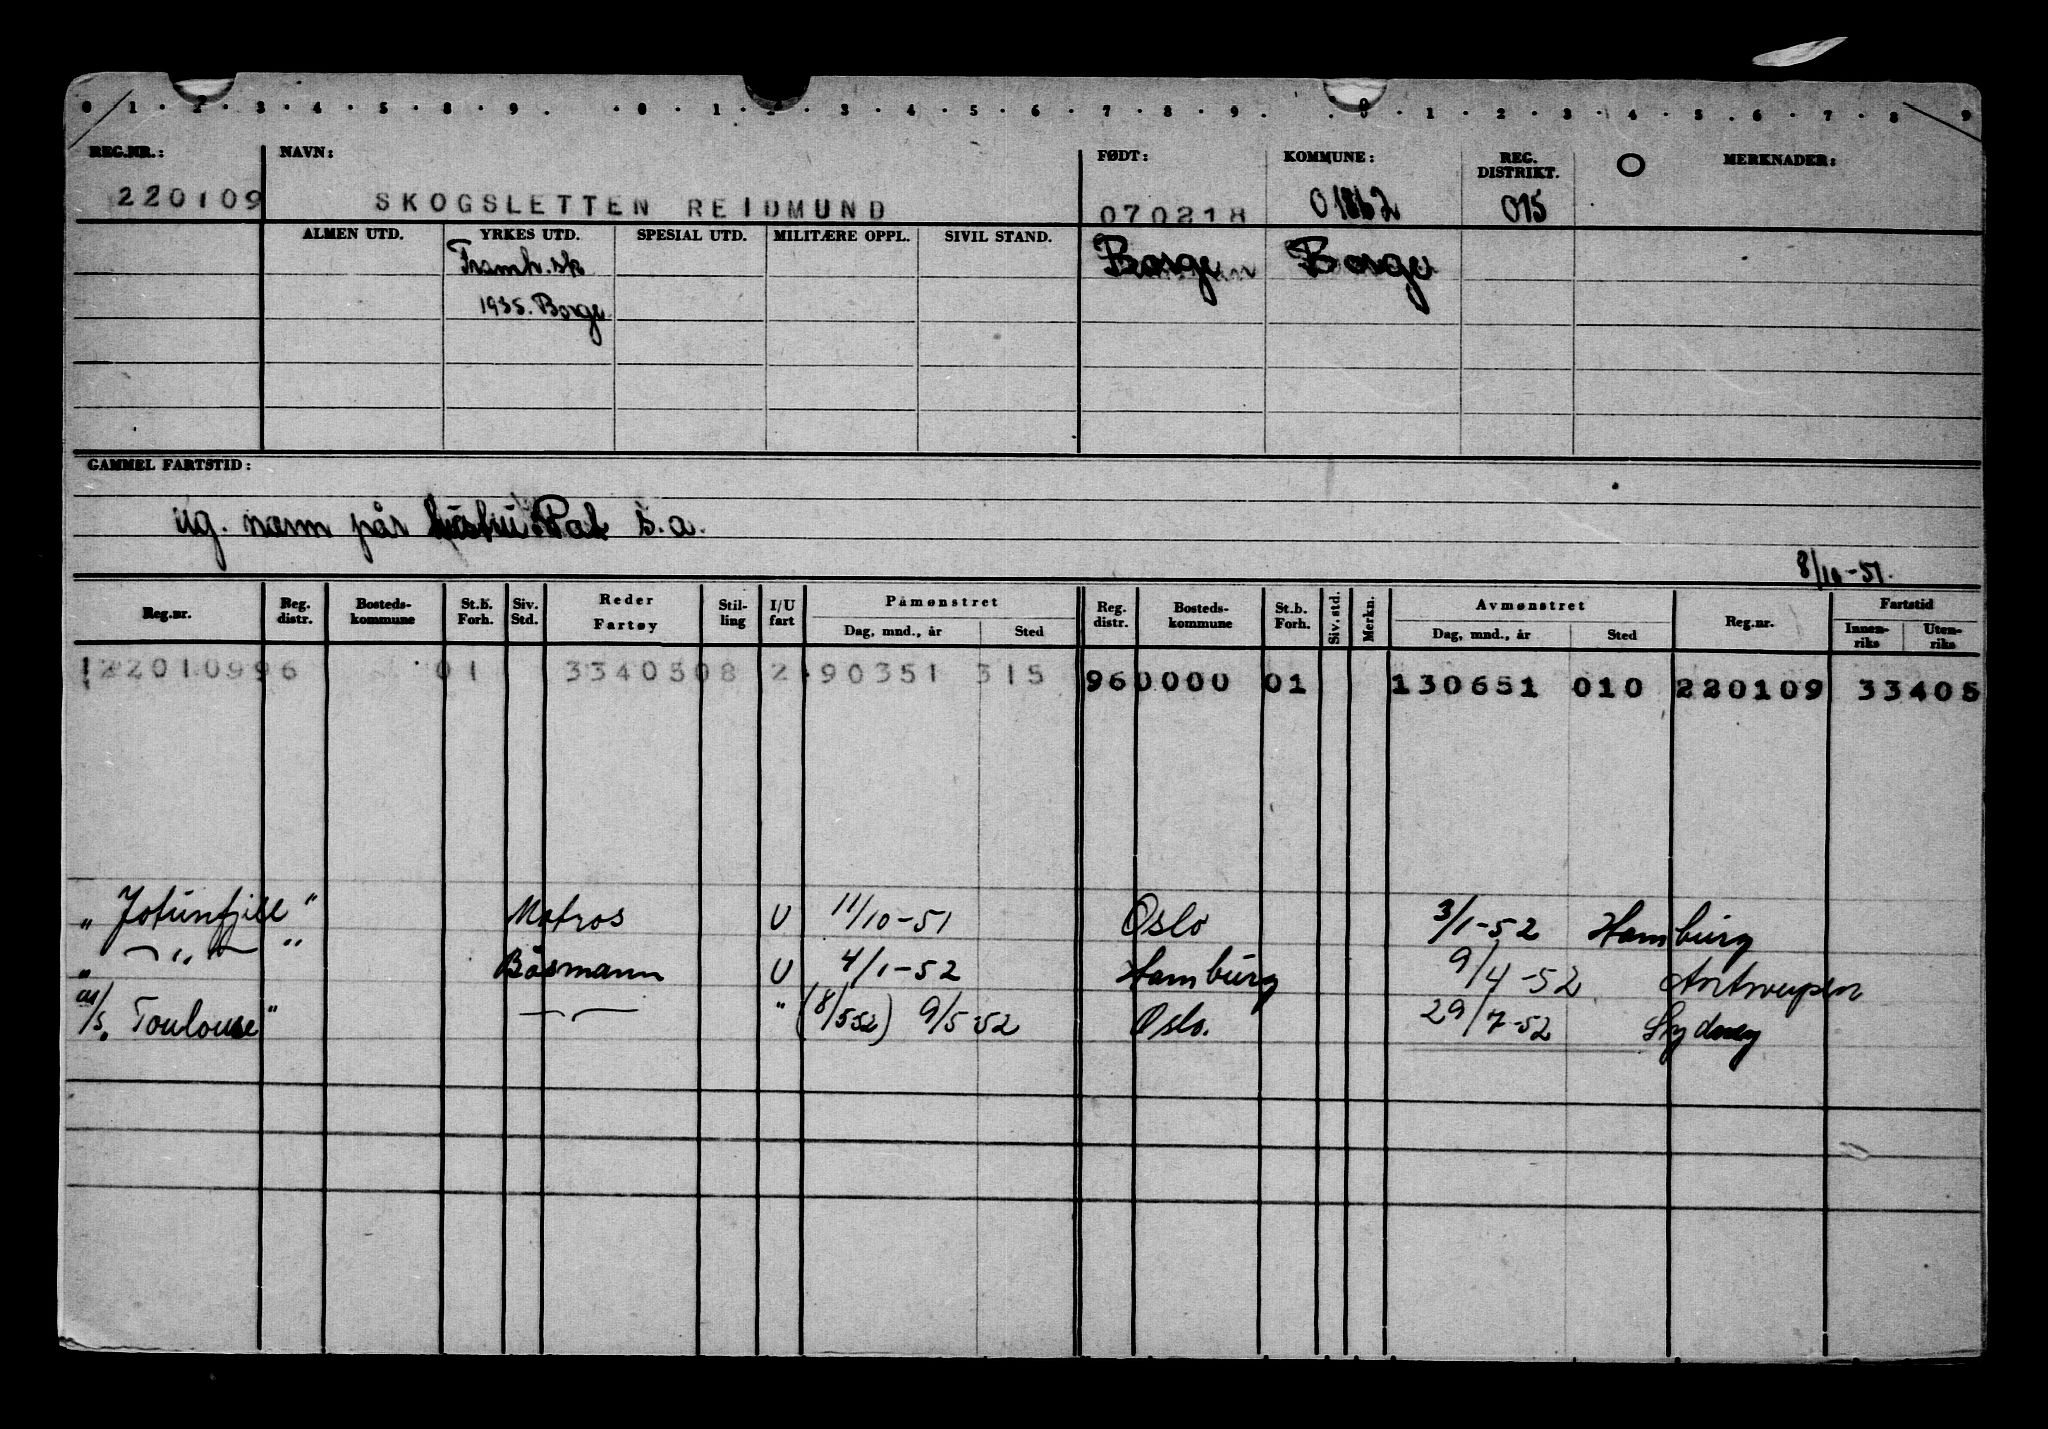 0 1 2 3 4 5 8 9 0 1 2 3 4 5 6 7 8 9 0 1 2 3 4 5 6 7 8 9
REG.NR.: NAVN: FØDT: KOMMUNE: REG. DISTRIKT. O MERKNADER:
220109 SKOGSLETTEN REIDMUND 070218 01862 015
ALMEN UTD. YRKES UTD. SPESIAL UTD. MILITÆRE OPPL. SIVIL STAND.
Framh.sk Borge Borge
1935. Borge
GAMMEL FARTSTID:
ug. narm pår Pat s.a.
8/10-51.
Reg.nr. Reg. distr. Bosteds-kommune St.b. Forh. Siv. Std. Reder Fartøy Stil-ling I/U fart Påmønstret Dag, mnd., år Sted Reg. distr. Bosteds-kommune St.b. Forh. Siv. std. Merkn. Avmønstret Dag, mnd., år Sted Reg.nr. Fartstid Innen-riks Uten-riks
22010996 01 3340508 2 90351 315 960000 01 130651 010 220109 33405
"Jotunfjell" Matros U 11/10-51 Oslo 3/1-52 Hamburg
" — " — " Båsmann U 4/1-52 Hamburg 9/4-52 Antwerpen
m/s. Toulouse" — — " (8/5 52) 9/5 52 Oslo. 29/7-52 Sydney